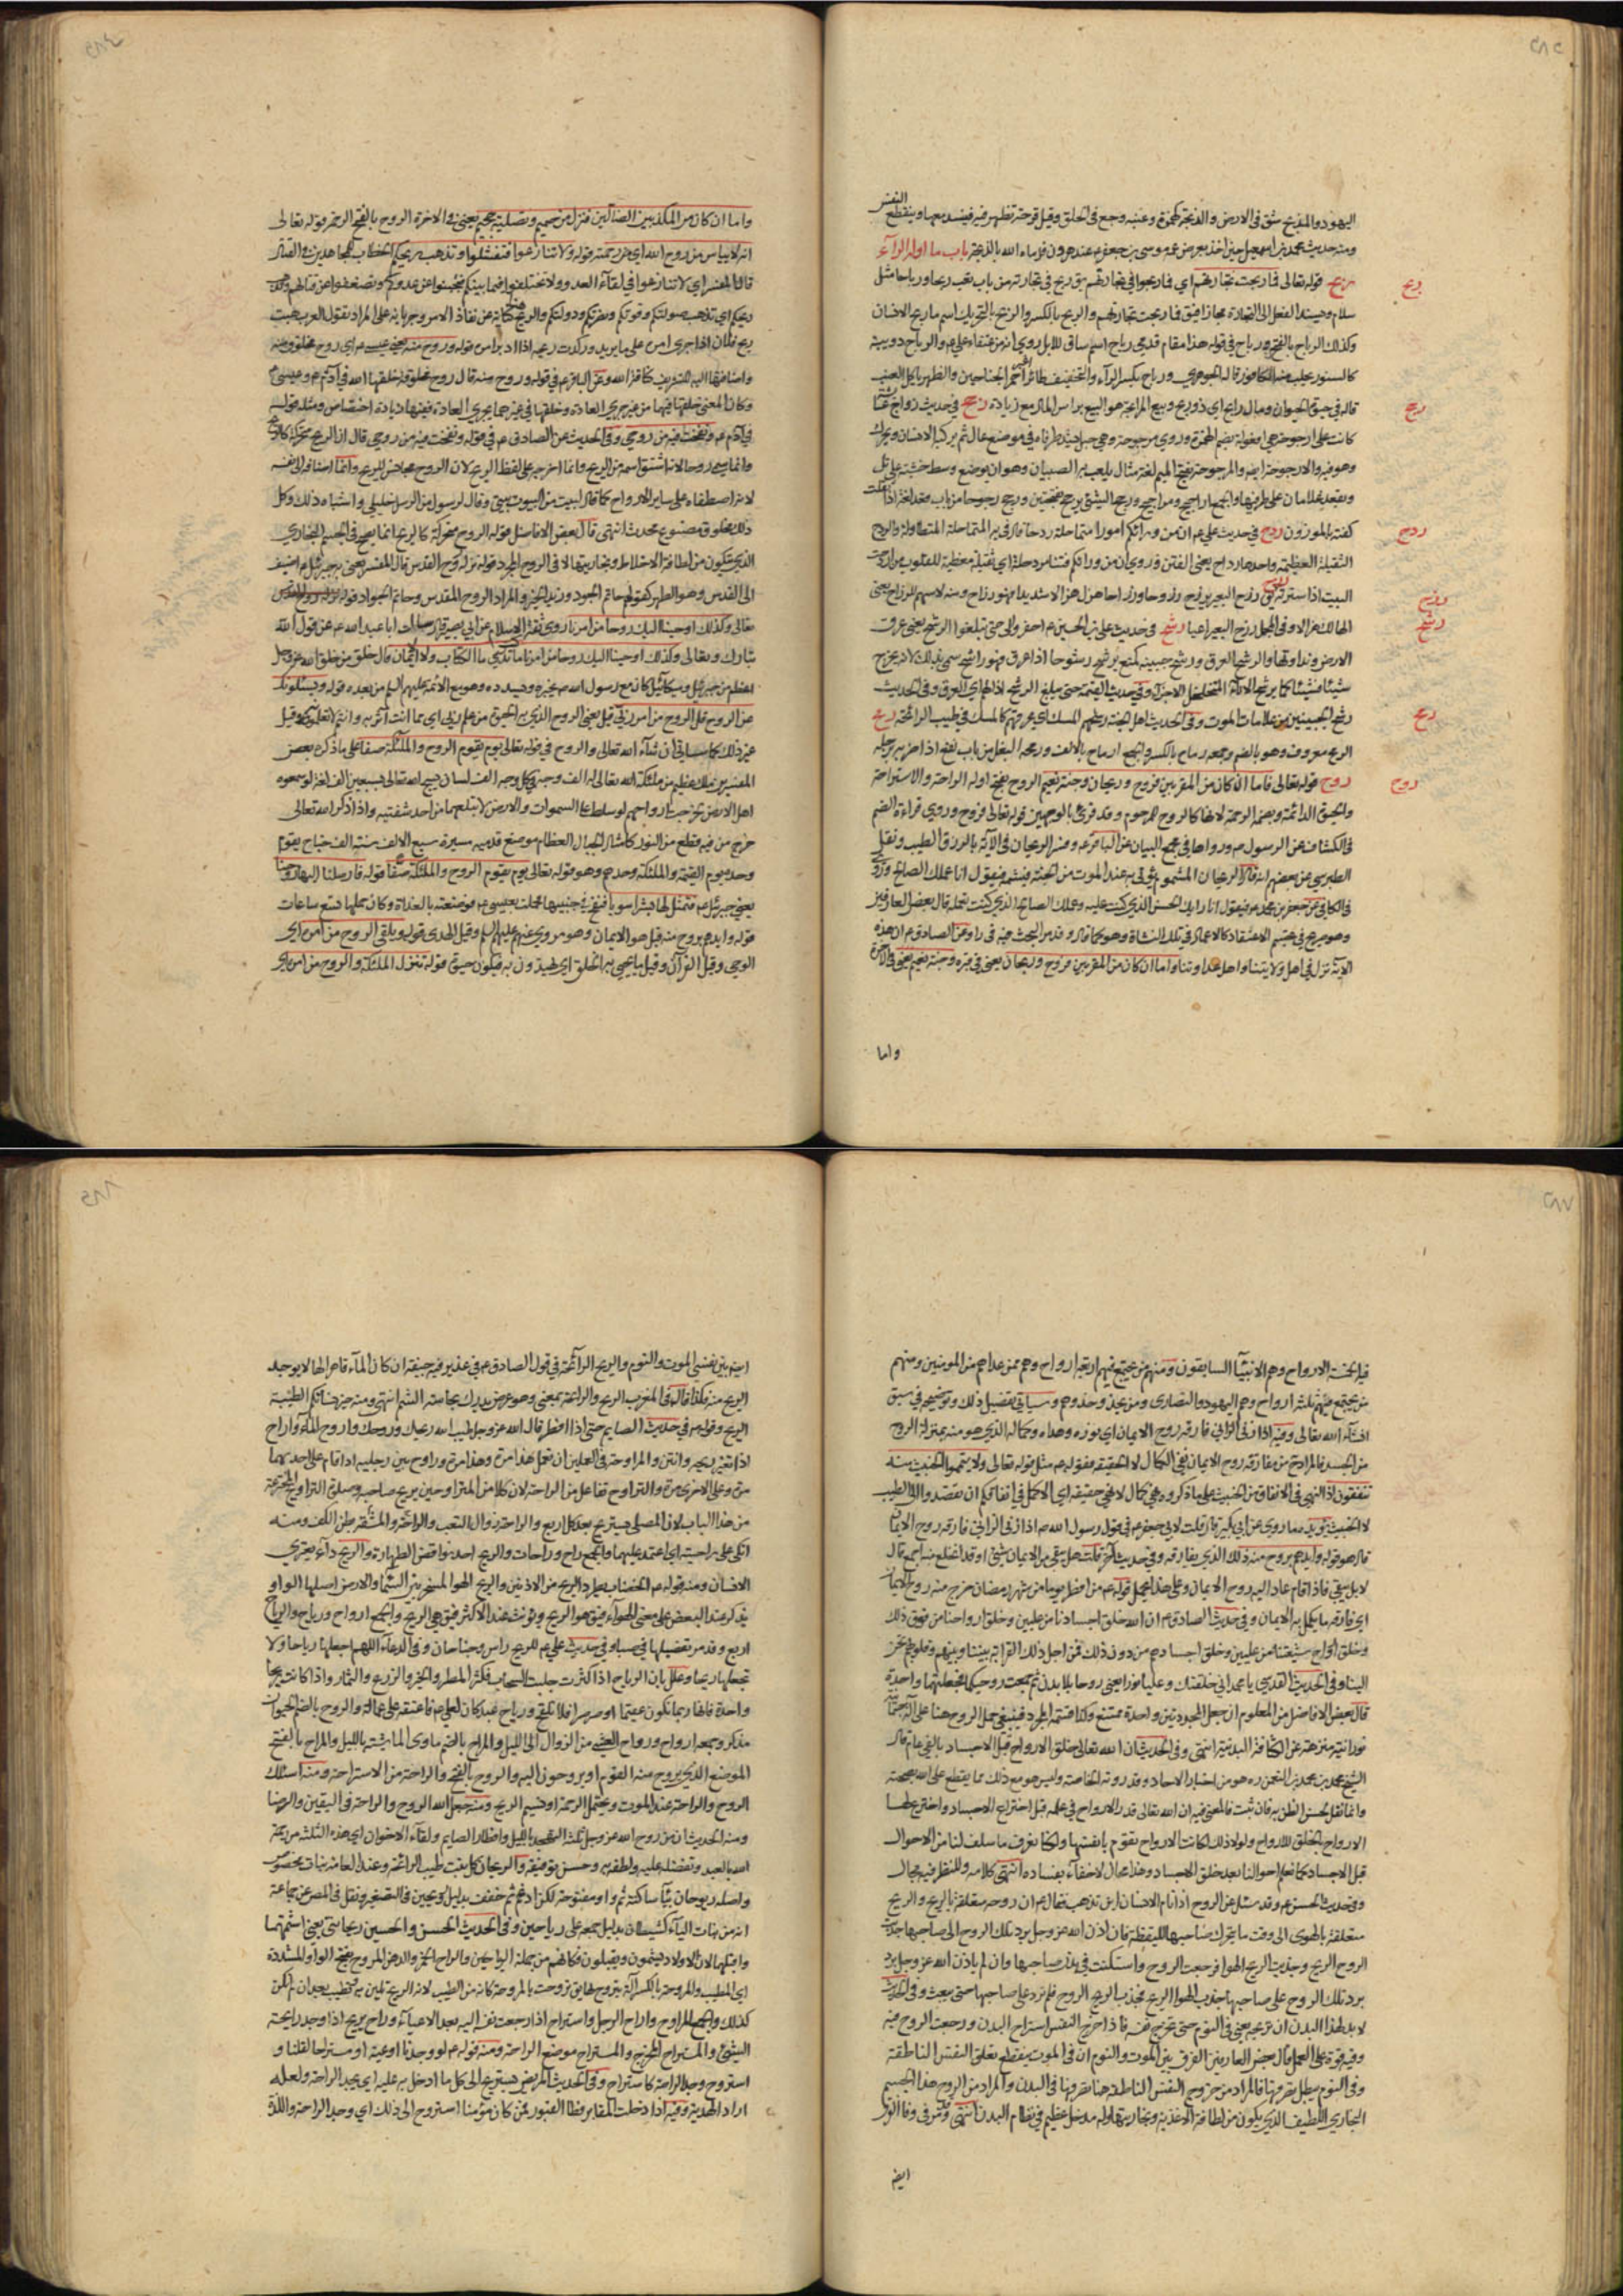 اليهود والمذبح شق في الارض والذبحة كهمزة وعنبة وجع في الحلق وقيل قرحة تظهر فيه فينسد معها وينقطع النفس
ومنه حديث محمد بن اسمعيل حين اخذ بعرض عم موسى بن جعفر عند هرون فرماه الله بالذبحة باب ما اوله الرآء
ربح قوله تعالى فما ربحت تجارتهم اي فما ربحوا في تجارتهم يق ربح في تجارته من باب تعب ربحا ورباحا مثل
سلام ويسند الفعل الى التجارة مجازا فيق فما ربحت تجارتهم والربح بالكسر والربح بالتحريك اسم ما ربح الانسان
وكذلك الرباح بالفتح ورباح في قوله هذا مقام قدمي رباح اسم ساق للابل
كالسنور يجلب منه الكافور قاله الجوهري ورباح بكسر الرآء والتخفيف طائر
قاله في حيوة الحيوان ومال رابح اي ذو ربح وبيع المرابحة هو البيع براس المال مع زيادة رجح في حديث زواج
كانت على ارجوحة هي افعولة بضم الهمزة وروي مرجوحة وهي حبل يشد طرفاه في موضع عال ثم يركبه الانسان ويحرك
وهو فيه والارجوحة ايضا والمرجوحة بفتح الميم لغة مثال يلعب به الصبيان وهو ان يوضع وسط خشبة على تل
ويقعد غلامان على طرفيها والجمع اراجيح ومراجيح ورجح الشيء يرجح بفتحتين ورجح رجوحا من باب قعد لغة اذا ثقلت
كفته بالموزون ردح في حديث علي عم ان من ورائكم امورا متماحلة ردحا قال في به المتماحلة المتطاولة والردح
الثقيلة العظيمة واحدها رداح يعني الفتن وروي ان من ورائكم فتنا مردحة اي مثقلة مغطية للقلوب من اردحت
البيت اذا سترته رزح يق رزح البعير يرزح رزوحا ورزاحا هزل هزالا شديدا فهو رازح ومنه
الهالك هزالا وفي المجمل رزح البعير اعيا رشح في حديث علي بن الحسين عم احفروا لي حتى تبلغوا الرشح يعني عرق
الارض ونداوتها والرشح العرق ورشح جبينه كمنع يرشح رشوحا اذا عرق فهو راشح سمي بذلك لانه يخرج
شيئا فشيئا كما يرشح الاناء المتخلخل الاجزاء وفي حديث القيمة حتى يبلغ الرشح اذانهم اي العرق وفي الحديث
رشح الجبين من علامات الموت وفي الحديث اهل الجنة رشحهم المسك اي عرقهم كالمسك في طيب الرائحة رمح
الرمح معروف وهو بالضم وجمعه رماح بالكسر والجمع ارماح بالالف ورمحه البغل من باب نفع اذا ضربه برجله
روح قوله تعالى فاما ان كان من المقربين فروح وريحان وجنة نعيم الروح بفتح اوله الراحة والاستراحة
والحيوة الدائمة وبضمه الرحمة لانها كالروح للمرحوم وقد قرئ بالوجهين قوله تعالى فروح وروي قراءة الضم
في الكشاف عن الرسول ص ورواها في مجمع البيان عن الباقر عم وفسر الريحان في الآية بالرزق الطيب ونقل
الطبرسي عن بعضهم انه قال الريحان المشموم يؤتى به عند الموت من الجنة فيشمه فيقول انا عملك الصالح وروى
في الكافي عن جعفر بن محمد عم فيقول انا رايك الحسن الذي كنت عليه وعملك الصالح الذي كنت تعمله قال بعض العارفين
وهو صريح في تجسم الاعتقاد كالاعمال في تلك النشاة وهو كما قال وقد مر البحث فيه في راد وعن الصادق عم ان هذه
الاية نزل في اهل ولايتنا واهل عداوتنا واما ان كان من المقربين فروح وريحان يعني في قبره وجنة نعيم يعني في الآخرة
واما
واما ان كان من المكذبين الضآلين فنزل من حميم وتصلية جحيم يعني في الاخرة الروح بالفتح الرحمة قوله تعالى
انه لا يياس من روح الله اي من رحمته قوله ولا تنازعوا فتفشلوا وتذهب ريحكم الخطاب للمجاهدين في القتال
قال المفسر اي لا تنازعوا في لقآء العدو ولا تختلفوا فيما بينكم فتجبنوا عن عدوكم وتضعفوا عن قتالهم وتذهب
ريحكم اي تذهب صولتكم وقوتكم ونصرتكم ودولتكم والريح هنا كناية عن نفاذ الامر وجريانه على المراد تقول العرب هبت
ريح فلان اذا جرى امره على ما يريد وركدت ريحه اذا ادبر امره قوله وروح منه يعني عيسى عم اي روح مخلوق منه
واضافها اليه للتشريف كناقة الله وعن الباقر عم في قوله وروح منه قال روح مخلوقة خلقها الله في آدم عم وعيسى عم
وكان المعنى خلقها فيهما من غير جري العادة وخلقها في غيرهما بجري العادة ففيها زيادة اختصاص ومثله قوله
في آدم عم ونفخت فيه من روحي وفي الحديث عن الصادق عم في قوله ونفخت فيه من روحي قال ان الروح متحرك كالريح
وانما سمي روحا لانه اشتق اسمه من الريح وانما اخرجه على لفظ الريح لان الروح مجانس للريح وانما اضافه الى نفسه
لانه اصطفاه على ساير الارواح كما قال لبيت من البيوت بيتي وقال لرسول من الرسل خليلي واشباه ذلك وكل
ذلك مخلوق مصنوع محدث انتهى قال بعض الافاضل قوله الروح متحرك كالريح انما يصح في الجسم البخاري
الذي يتكون من لطافة الاخلاط وبخاريتها لا في الروح المجرد قوله نزله روح القدس قال المفسر يعني به جبرئيل عم اضيف
الى القدس وهو الطهر كقولهم حاتم الجود وزيد الخير والمراد الروح المقدس وحاتم الجواد قوله
تعالى وكذلك اوحينا اليك روحا من امرنا روى ثقة الاسلام عن ابي بصير قال سالت ابا عبد الله عم عن قول الله
تبارك وتعالى وكذلك اوحينا اليك روحا من امرنا ما كنت تدري ما الكتاب ولا الايمان قال خلق من خلق الله عز وجل
اعظم من جبرئيل وميكائيل كان مع رسول الله ص يخبره ويسدده وهو مع الائمة عليهم السلم من بعده قوله ويسئلونك
عن الروح قل الروح من امر ربي قيل يعني الروح الذي به الحيوة من علم ربي اي مما استاثر به وانتم لا تعلمونه وقيل
غير ذلك كما سياتي ان شآء الله تعالى والروح في قوله تعالى يوم يقوم الروح والملئكة صفا على ما ذكره بعض
المفسرين ملك عظيم من ملئكة الله تعالى له الف وجه في كل وجه الف لسان يسبح الله تعالى بسبعين الف لغة لو سمعوه
اهل الارض لخرجت ارواحهم لو سلط على السموات والارض لابتلعهما من احد شفتيه واذا ذكر الله تعالى
خرج من فيه قطع من النور كامثال الجبال العظام موضع قدميه مسيرة سبع الالف سنة له الف جناح يقوم
وحده يوم القيمة والملئكة وحدهم وهو قوله تعالى يوم يقوم الروح والملئكة صفا قوله فارسلنا اليها روحنا
يعني جبرئيل عم فتمثل لها بشرا سويا فنفخ في جيبها فحملت بعيسى عم فوضعته بالغداة وكان حملها تسع ساعات
قوله وايدهم بروح منه قيل هو الايمان وهو مروي عنهم عليهم السلم وقيل الهدى قوله يلقي الروح من امره اي
الوحي وقيل القرآن وقيل ما يحيي به الخلق اي يهتدون به فيكون حيوة قوله تنزل الملئكة والروح من امره
فيه خمسة الارواح وهم الانبيآء السابقون ومنهم من يجتمع فيهم اربعة ارواح وهم من عداهم من المومنين ومنهم
من يجتمع فيهم ثلثة ارواح وهم اليهود والنصارى ومن يحذو حذوهم وسياتي تفصيل ذلك وتوضيحه في سبق
انشاء الله تعالى وفيه اذا زنى الزاني فارقه روح الايمان اي نوره وهداه وكماله الذي هو منه بمنزلة الروح
من الجسد فالمراد من مفارقة روح الايمان نفي الكمال لا الحقيقة فقوله عم مثل قوله تعالى ولا تيمموا الخبيث منه
تنفقون اذ النهي في الانفاق من الخبيث على ما ذكروه نفي كمال لا نفي حقيقة اي الاكمل في انفاقكم ان تقصدوا الى الطيب
لا الخبيث يؤيده ما روي عن ابي بكير قال قلت لابي جعفر عم في قول رسول الله ص اذا زنى الزاني فارقه روح الايمان
قال هو قوله وايدهم بروح منه ذلك الذي يفارقه وفي حديث آخر قلت هل يبقى من الايمان شيئ او قد انخلع منه اجمع قال
لا بل يبقى فاذا قام عاد اليه روح الايمان وعلى هذا يحمل قوله عم من افطر يوما من شهر رمضان خرج منه روح الايمان
اي فارقه ما يكمل به الايمان وفي حديث الصادق عم ان الله خلق اجسادنا من عليين وخلق ارواحنا من فوق ذلك
وخلق ارواح شيعتنا من عليين وخلق اجسادهم من دون ذلك فمن اجل ذلك القرابة بيننا وبينهم وقلوبهم تحن
الينا وفي الحديث القدسي يا محمد اني خلقتك وعليا نورا يعني روحا بلا بدن ثم جمعت روحيكما فجعلتهما واحدة
قال بعض الافاضل من المعلوم ان جعل المجردتين واحدة ممتنع وكذا قسمة المجرد فينبغي حمل الروح هنا على آلة جسمانية
نورانية منزهة عن الكثافة البدنية انتهى وفي الحديث ان الله تعالى خلق الارواح قبل الاجساد بالفي عام قال
الشيخ محمد بن محمد بن النعمن ره هو من اخبار الاحاد وقد روته الخاصة وليس هو مع ذلك مما يقطع على الله بصحته
وانما نقل لحسن الظن به فان ثبت فالمعنى فيه ان الله تعالى قدر الارواح في علمه قبل اختراع الاجساد واخترع لها
الارواح فالخلق للارواح ولولا ذلك لكانت الارواح تقوم بانفسها ولكنا نعرف ما سلف لنا من الاحوال
قبل الاجساد كما نعلم احوالنا بعد خلق الاجساد وهذا محال لا خفآء بفساده انتهى كلامه وللنظر فيه مجال
وفي حديث الحسن عم وقد سئل عن الروح اذا نام الانسان اين تذهب فقال عم ان روحه متعلقة بالريح والريح
متعلقة بالهوى الى وقت ما يتحرك صاحبها لليقظة فان اذن الله عز وجل برد تلك الروح الى صاحبها جذبت
الروح الريح وجذبت الريح الهوا فرجعت الروح واسكنت في بدن صاحبها وان لم ياذن الله عز وجل برد
برد تلك الروح على صاحبها جذب الهوا الريح فجذب الريح الروح فلم ترد على صاحبها حتى يبعث وفي الحديث
لا بد لهذا البدن ان تريحه يعني في النوم حتى تخرج نفسه فاذا خرج النفس استراح البدن ورجعت الروح فيه
وفيه قوة على العمل قال بعض العارفين الفرق بين الموت والنوم ان في الموت ينقطع تعلق النفس الناطقة
وفي النوم يبطل تصرفها فالمراد من خروج النفس الناطقة هنا تصرفها في البدن والمراد من الروح هذا الجسم
البخاري اللطيف الذي يكون من لطافة الاغذية وبخاريتها وله مدخل عظيم في نظام البدن انتهى
ايض
ايض بين نفسي الموت والنوم والريح الرآئحة في قول الصادق عم في غدير فيه جيفة ان كان المآء قاهرا لها لا يوجد
الريح منه فكذا قاله في المغرب الريح والرائحة بمعنى وهو عرض يدرك بحاسة الشم انتهى ومنه
الريح وقوله عم في حديث الصايم حتى اذا افطر قال الله عز وجل ما اطيب ريحك وروحك واروح المآء واراح
اذا تغير ريحه وانتن والمراوحة في العملين ان تعمل هذا مرة وهذا مرة وراوح بين رجليه اذا قام على احديهما
مرة وعلى الاخرى مرة والتراوح تفاعل من الراحة لان كلا من المتراوحين يريح صاحبه وصلوة التراويح المخترعة
من هذا الباب لان المصلي يستريح بعد كل اربع والراحة زوال التعب والمشقة والراحة بطن الكف ومنه
اتكى على راحتيه اي اعتمد عليهما والجمع راح وراحات والريح احد نواقض الطهارة والريح دآء يعتري
الانسان ومنه قوله عم الخضاب يطرد الريح من الاذنين والريح الهوا المسخر بين السمآء والارض اصلها الواو
يذكر عند البعض على معنى الهواء فيق هو الريح ويؤنث عند الاكثر فيق هي الريح والجمع ارواح ورياح والرياح
اربع وقد مر تفصيلها في صبا وفي حديث علي عم للريح راس وجناحان وفي الدعآء اللهم اجعلها رياحا ولا
تجعلها ريحا وعلل بان الرياح اذا كثرت جلبت السحاب فكثر المطر والخير والزرع والثمار واذا كانت ريحا
واحدة فانها ربما تكون عقيما او صرصرا فلا تلقح ورياح عبد كان لعلي عم فاعتقه على عماله والروح بالضم الحيوان
مذكر وجمعه ارواح ورواح العشي من الزوال الى الليل والمراح بالضم ماوى الماشية بالليل والمراح بالفتح
الموضع الذي يروح منه القوم او يروحون اليه والروح بالفتح والراحة من الاستراحة ومنه اسئلك
الروح والراحة عند الموت ويحتمل الرحمة او نسيم الريح ومنه جعل الله الروح والراحة في اليقين والرضا
ومنه الحديث ان من روح الله عز وجل ثلثة التهجد بالليل وافطار الصايم ولقآء الاخوان اي هذه الثلثة من رحمة
الله بالعبد وتفضله عليه ولطفه به وحسن توفيقه والريحان كل نبت طيب الرائحة وعند العامة نبات مخصوص
واصله ريوحان بيآء ساكنة ثم واو مفتوحة لكن ادغم ثم خفف بدليل رويحين في التصغير ونقل في المصر عن جماعة
انه من بنات اليآء كشيطان بدليل جمعه على رياحين وفي الحديث الحسن والحسين ريحانتي يعني اشمهما
واقبلهما لان الاولاد يشمون ويقبلون فكانهم من جملة الرياحين والراح الخمر والدهن المروح بفتح الواو المشددة
اي المطيب والمروحة بالكسر آلة يتروح بها يق تروحت بالمروحة كانه من الطيب لانه الريح تلين به وتطيب بعد ان لم تكن
كذلك والجمع المراوح واراح الرجل واستراح اذا رجعت نفسه اليه بعد الاعيآء وراح يريح اذا وجد رايحة
الشيئ والمستراح المخرج والمستراح موضع الراحة ومنه قوله عم لو وجدنا اوعية او مستراحا لقلنا و
استروح وجد الراحة كاستراح وفي الحديث المريض يستريح الى كل ما ادخل به عليه اي يجد الراحة ولعله
اراد الهدية وفيه اذا دخلت المقابر فطا القبور فمن كان مؤمنا استروح الى ذلك اي وجد الراحة واللذة